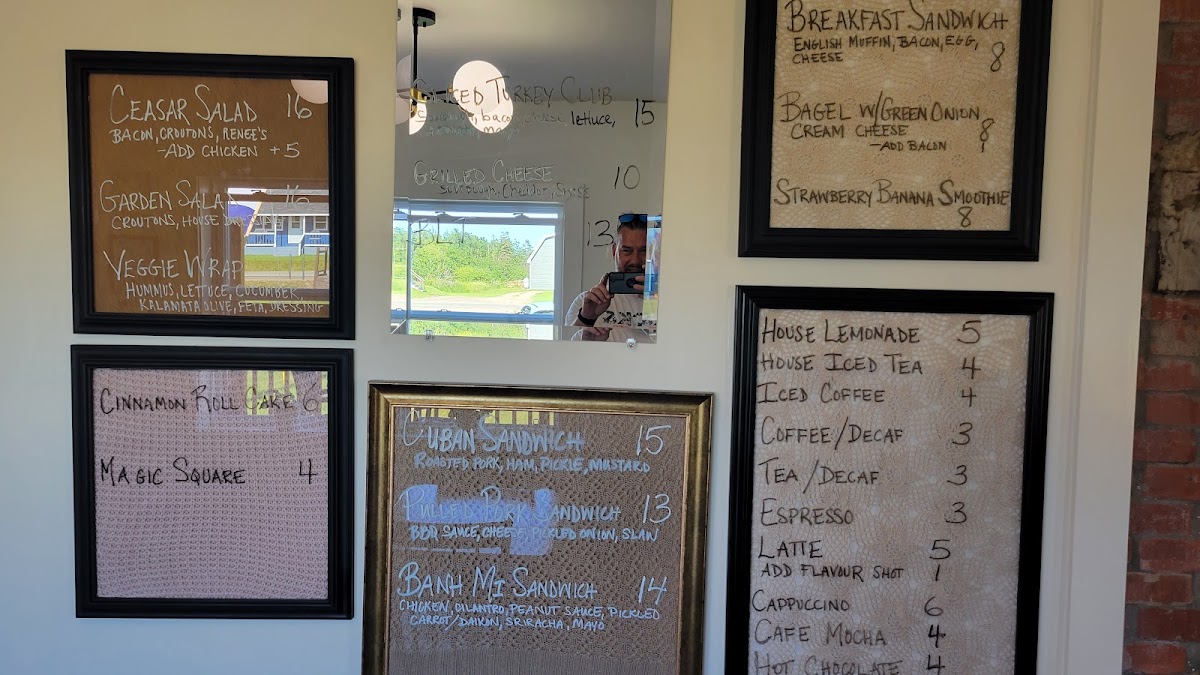 CEASAR SALAD 16
BACON, CROUTONS, RENEE'S
-ADD CHICKEN +5
GARDEN SALAD 16
CROUTONS, HOUSE DRESSING
VEGGIE WRAP
HUMMUS, LETTUCE, CUCUMBER,
KALAMATA OLIVE, FETA, DRESSING
CINNAMON ROLL CAKE 6
MAGIC SQUARE 4
TURKEY CLUB
bacon, cheese, lettuce, 15
mayo
GRILLED CHEESE 10
Sourdough, Cheddar, Swiss
BLT 13
CUBAN SANDWICH 15
ROASTED PORK, HAM, PICKLE, MUSTARD
PULLED PORK SANDWICH 13
BBQ SAUCE, CHEESE, PICKLED ONION, SLAW
BANH MI SANDWICH 14
CHICKEN, CILANTRO, PEANUT SAUCE, PICKLED
CARROT/DAIKON, SRIRACHA, MAYO
BREAKFAST SANDWICH
ENGLISH MUFFIN, BACON, EGG, 8
CHEESE
BAGEL W/GREEN ONION
CREAM CHEESE 8
-ADD BACON 1
STRAWBERRY BANANA SMOOTHIE
8
HOUSE LEMONADE 5
HOUSE ICED TEA 4
ICED COFFEE 4
COFFEE/DECAF 3
TEA/DECAF 3
ESPRESSO 3
LATTE 5
ADD FLAVOUR SHOT 1
CAPPUCCINO 6
CAFE MOCHA 4
HOT CHOCOLATE 4